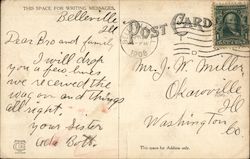 THIS SPACE FOR WRITING MESSAGES.
POST CARD
Belleville
Ill
Dear Bro and family,
I will drop
you a few lines
we received the
wagon and things
all right.
your Sister
1908
Mr. J. W. Miller
Okawville
Ill.
Washington
Co.
This space for Address only.